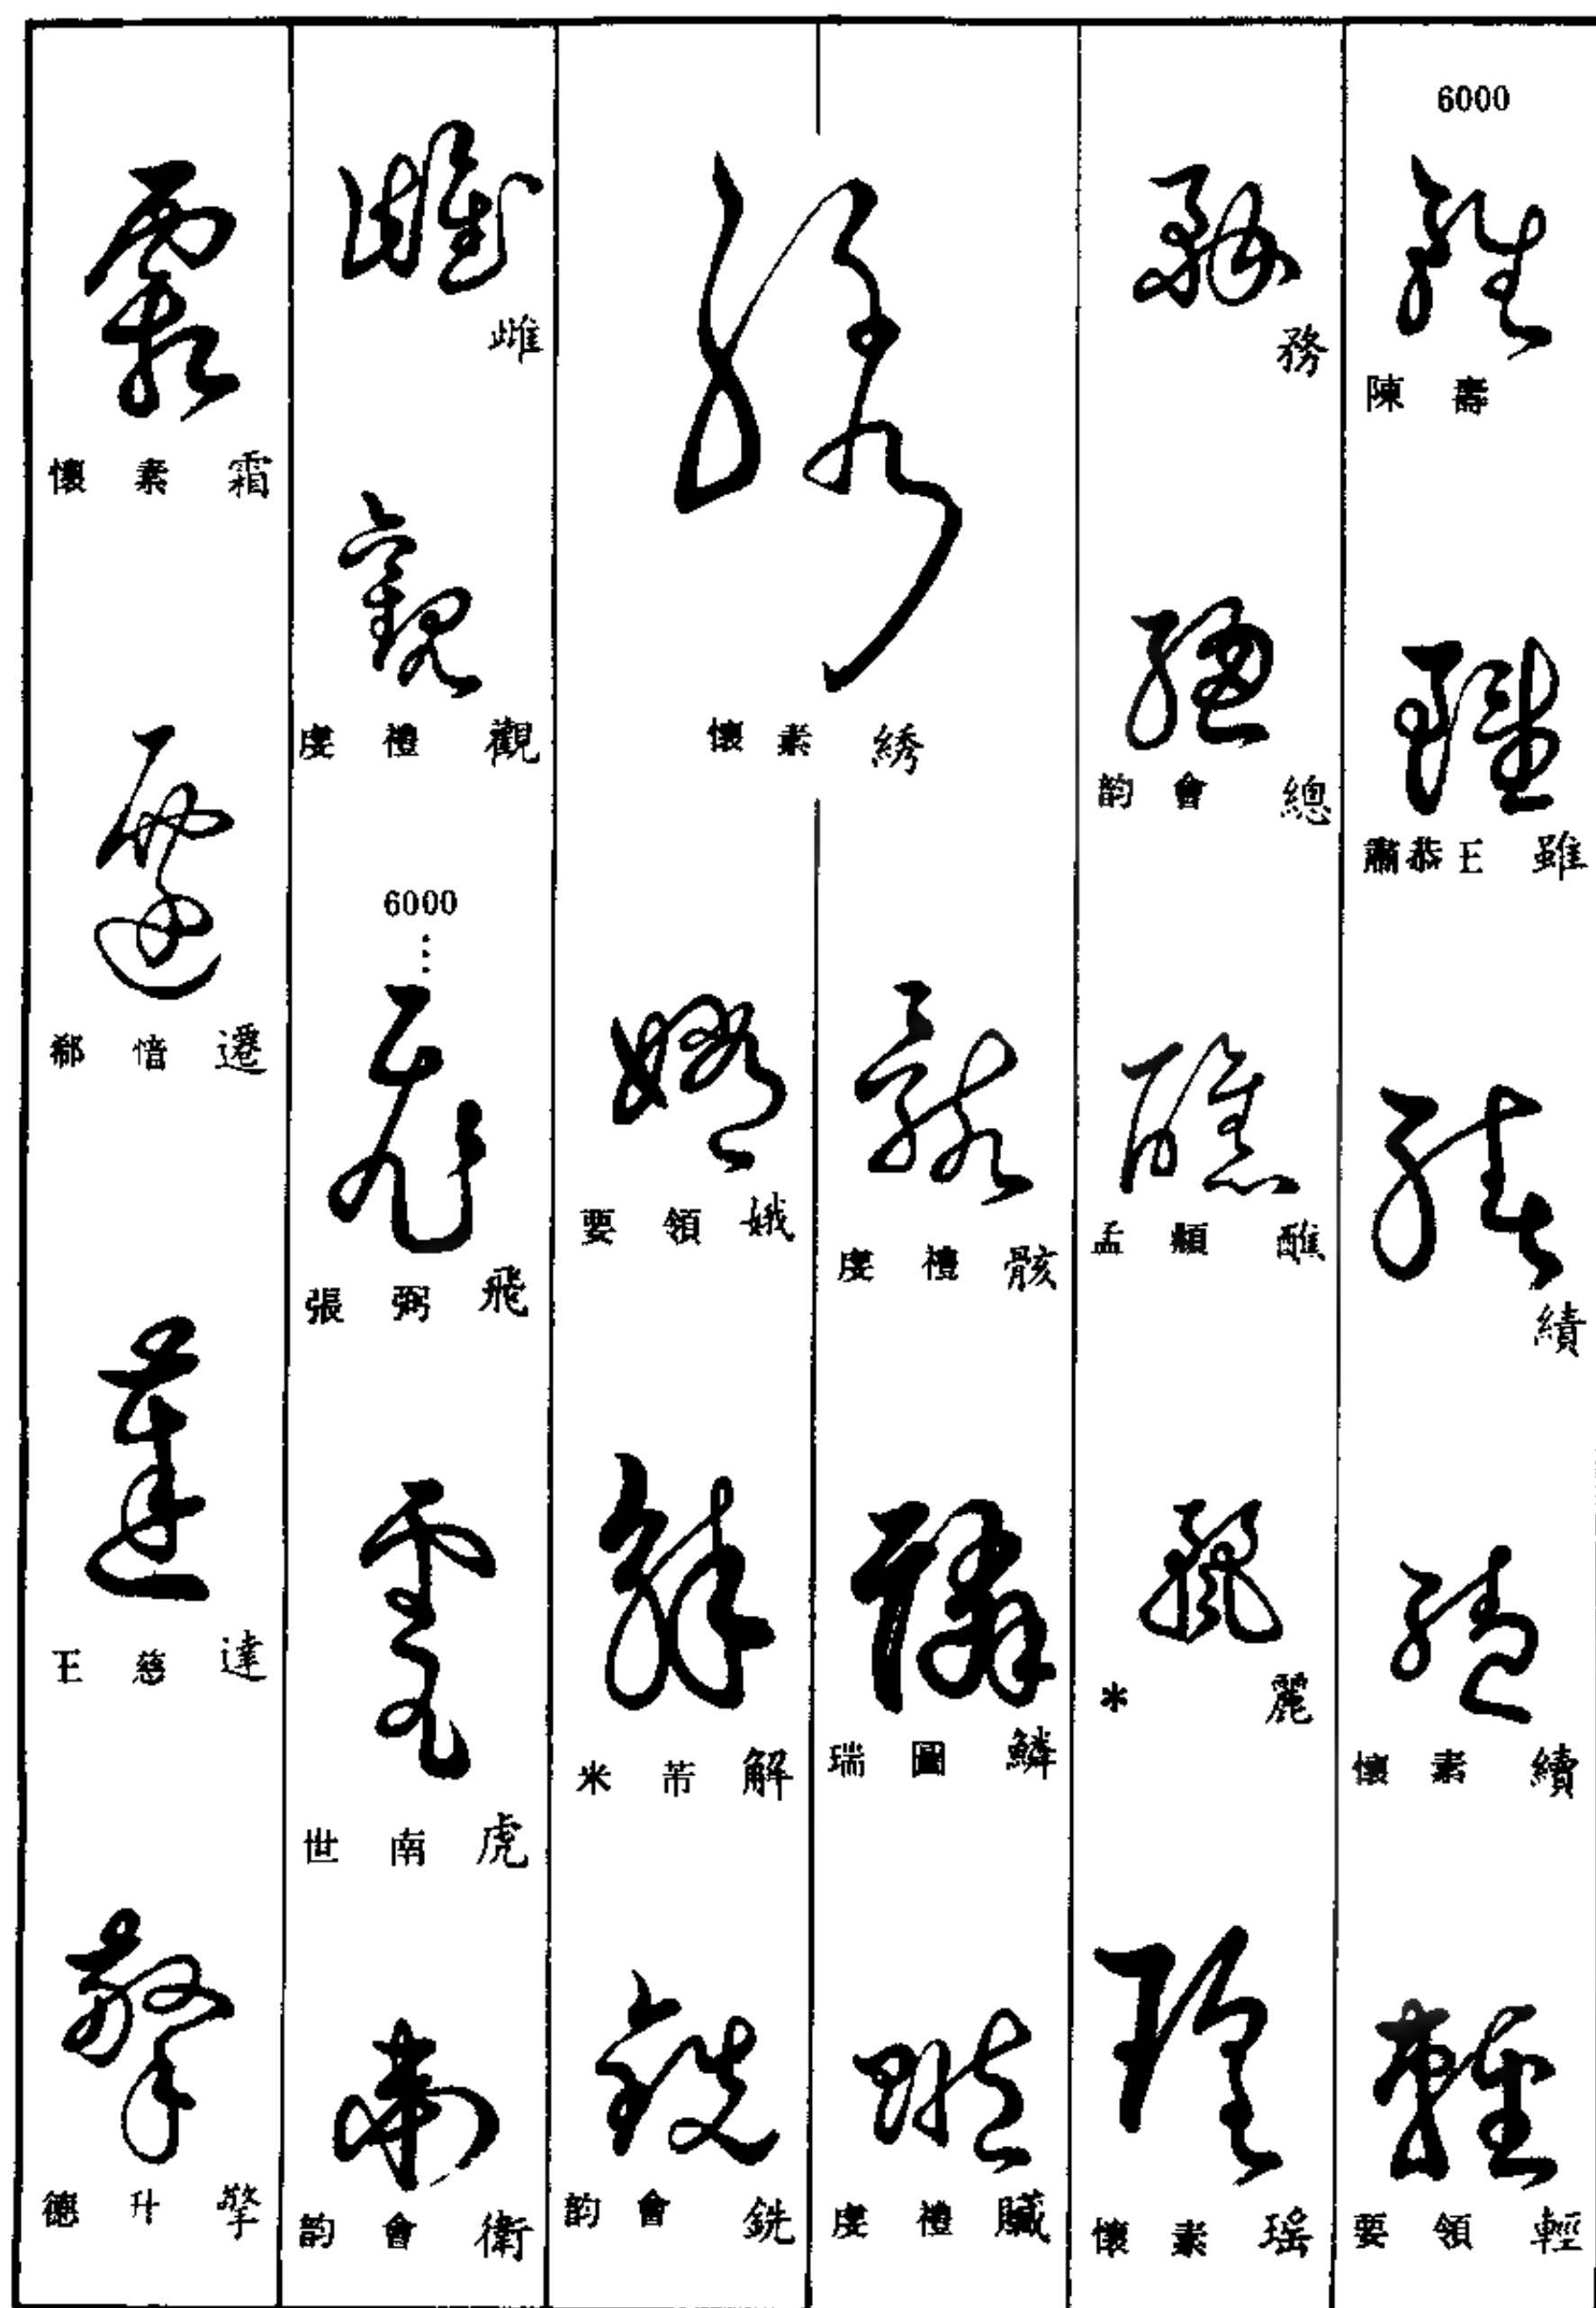 6000
陳壽
肅恭王 雖
績
懷素 續
要領 輕
務
韵會 總
孟頫 醮
* 麗
懷素 瑶
懷素 綉
虔禮 骸
瑞圖 鱗
虔禮 贓
要領 娥
米芾 解
韵會 銑
雌
虔禮 觀
6000
張弼 飛
世南 虎
韵會 衛
懷素 霜
郗愔 遷
王慈 達
德升 擎